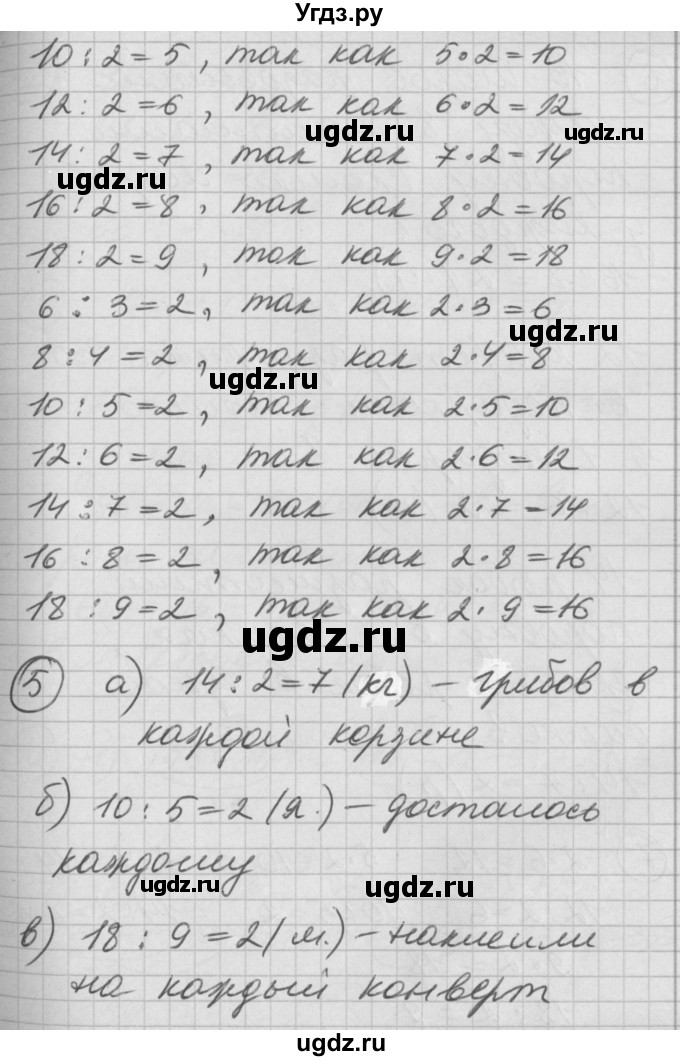 Угдз.ру
10 : 2 = 5, так как 5 · 2 = 10
12 : 2 = 6, так как 6 · 2 = 12
ugdz.ru ugdz.ru
14 : 2 = 7, так как 7 · 2 = 14
ugdz.ru
16 : 2 = 8, так как 8 · 2 = 16
18 : 2 = 9, так как 9 · 2 = 18
6 : 3 = 2, так как 2 · 3 = 6
ugdz.ru
8 : 4 = 2, так как 2 · 4 = 8
ugdz.ru
10 : 5 = 2, так как 2 · 5 = 10
12 : 6 = 2, так как 2 · 6 = 12
14 : 7 = 2, так как 2 · 7 = 14
16 : 8 = 2, так как 2 · 8 = 16
18 : 9 = 2, так как 2 · 9 = 16
ugdz.ru
5 а) 14 : 2 = 7 (кг) – грибов в
каждой корзине
б) 10 : 5 = 2 (я.) – досталось
каждому
ugdz.ru ugdz.ru
в) 18 : 9 = 2 (м.) – наклеили
на каждый конверт
ugdz.ru